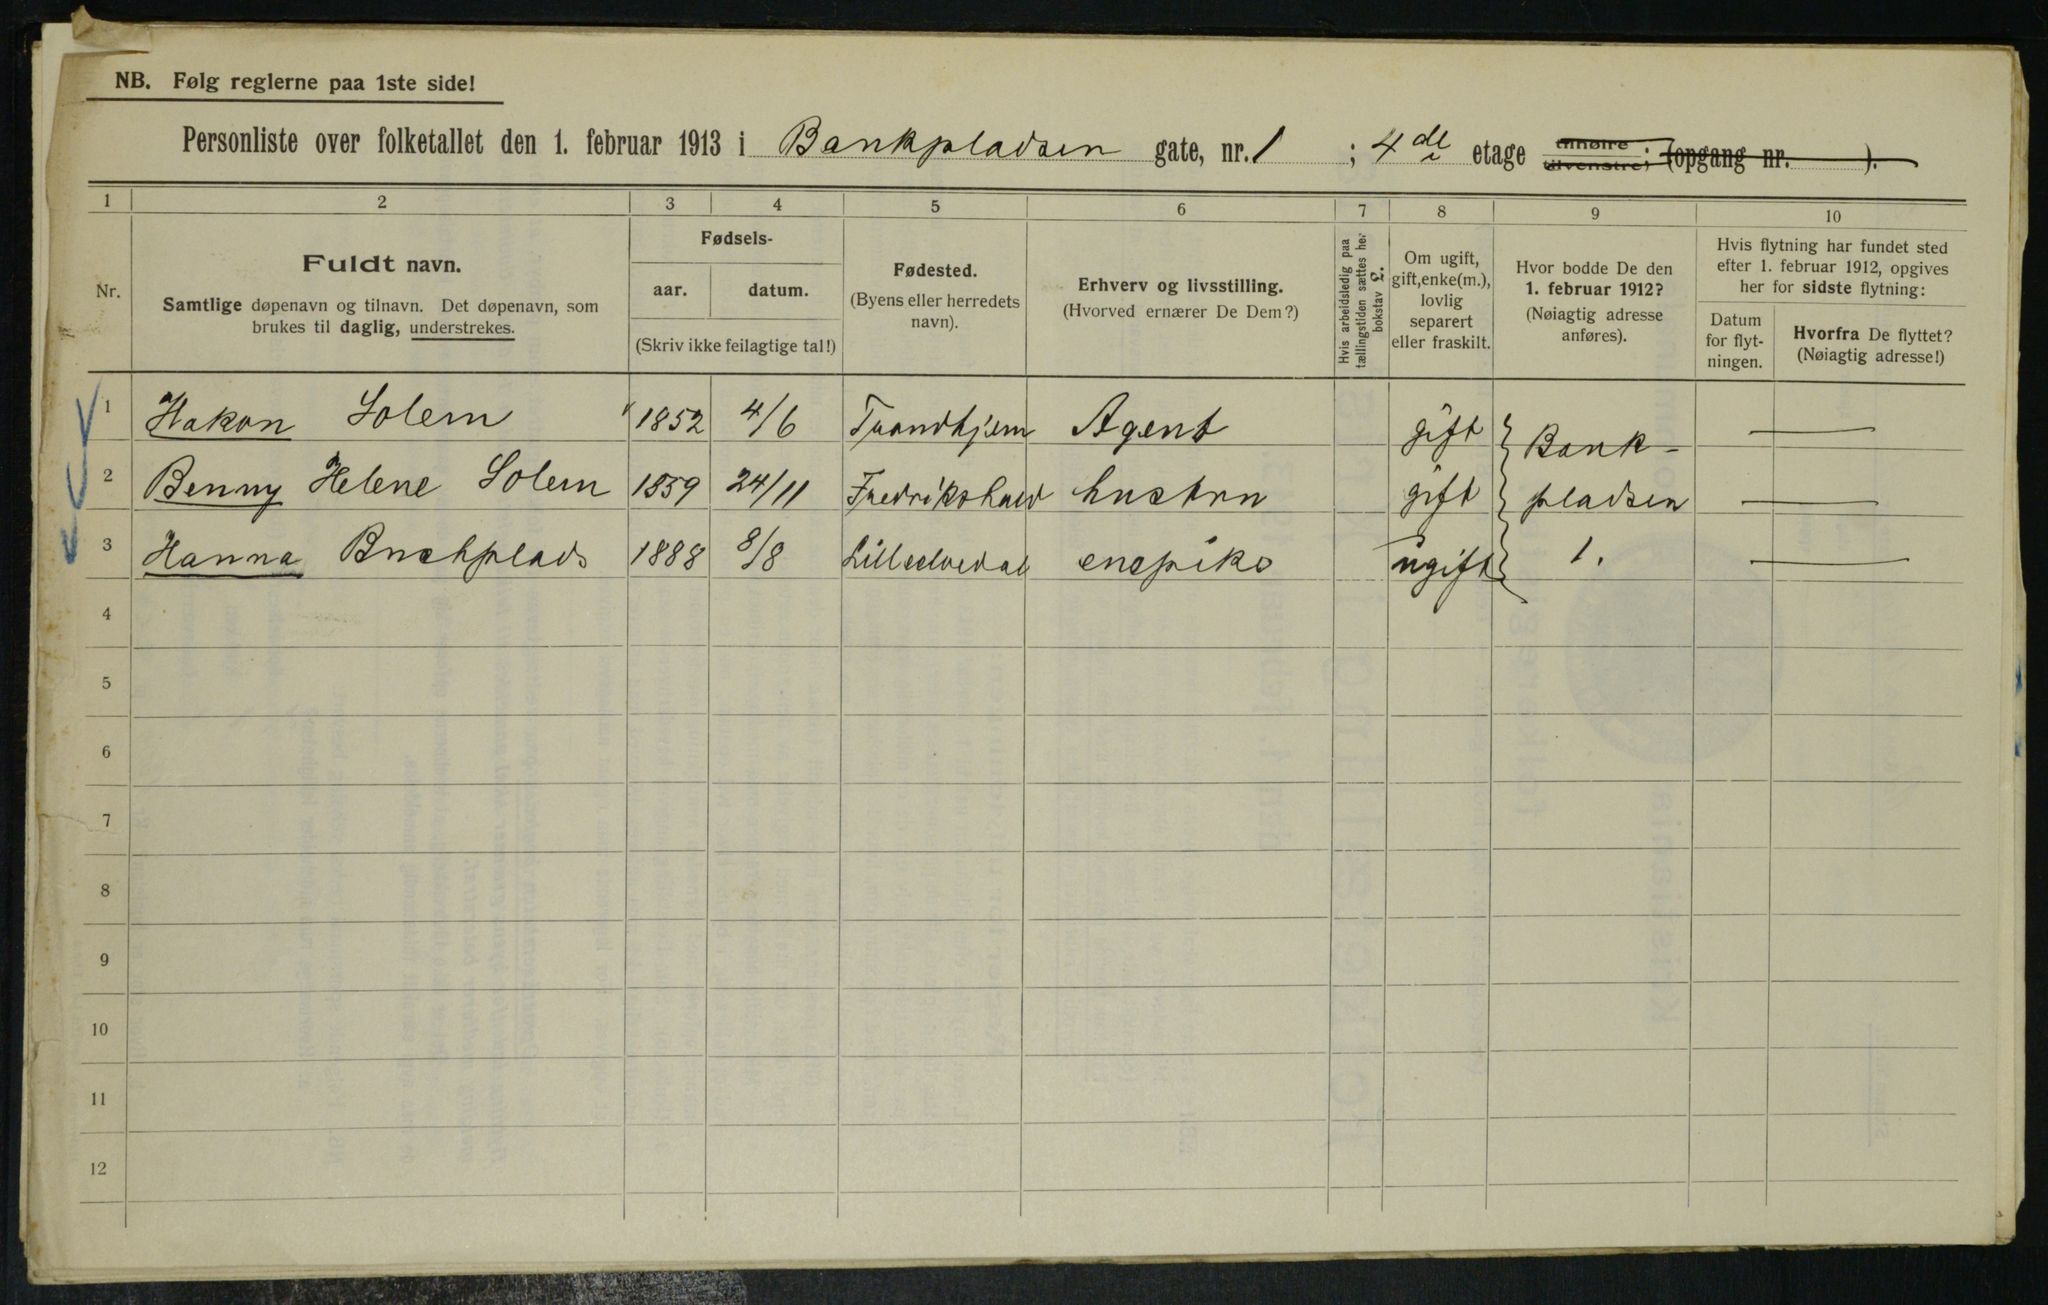 NB. Følg reglerne paa 1ste side!
Personliste over folketallet den 1. februar 1913 i Bankpladsen gate, nr. 1 ; 4de etage tilhøire; tilvenstre; (opgang nr. ).
1 2 3 4 5 6 7 8 9 10
Nr.
Fuldt navn.
Samtlige døpenavn og tilnavn. Det døpenavn, som
brukes til daglig, understrekes.
Fødsels-
aar. datum.
(Skriv ikke feilagtige tal!)
Fødested.
(Byens eller herredets
navn).
Erhverv og livsstilling.
(Hvorved ernærer De Dem?)
Hvis arbeidsledig paa
tællingstiden sættes her
bokstav L.
Om ugift,
gift, enke(m.),
lovlig
separert
eller fraskilt.
Hvor bodde De den
1. februar 1912?
(Nøiagtig adresse
anføres).
Hvis flytning har fundet sted
efter 1. februar 1912, opgives
her for sidste flytning:
Datum
for flyt-
ningen.
Hvorfra De flyttet?
(Nøiagtig adresse!)
1 Hakon Solem 1852 4/6 Trondhjem Agent gift Bank-
2 Benny Helene Solem 1859 24/11 Fredrikshald hustru gift pladsen
3 Hanna Buchplads 1888 8/8 Lilleelvedal enepike ugift 1.
4
5
6
7
8
9
10
11
12